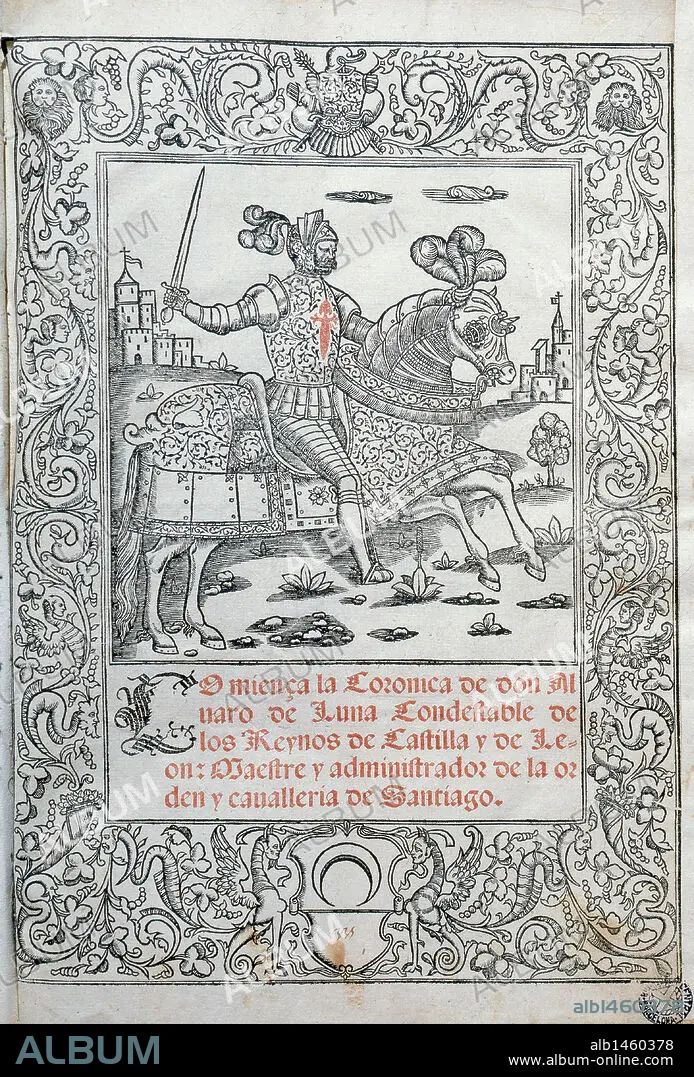 COmiença la Coronica de don Al
uaro de Luna Condestable de
los Reynos de Castilla y de Le-
on: Maestre y administrador de la or
den y caualleria de Santiago.
ALBUM
alb1460378
ALBUM
alb1460378
www.album-online.com